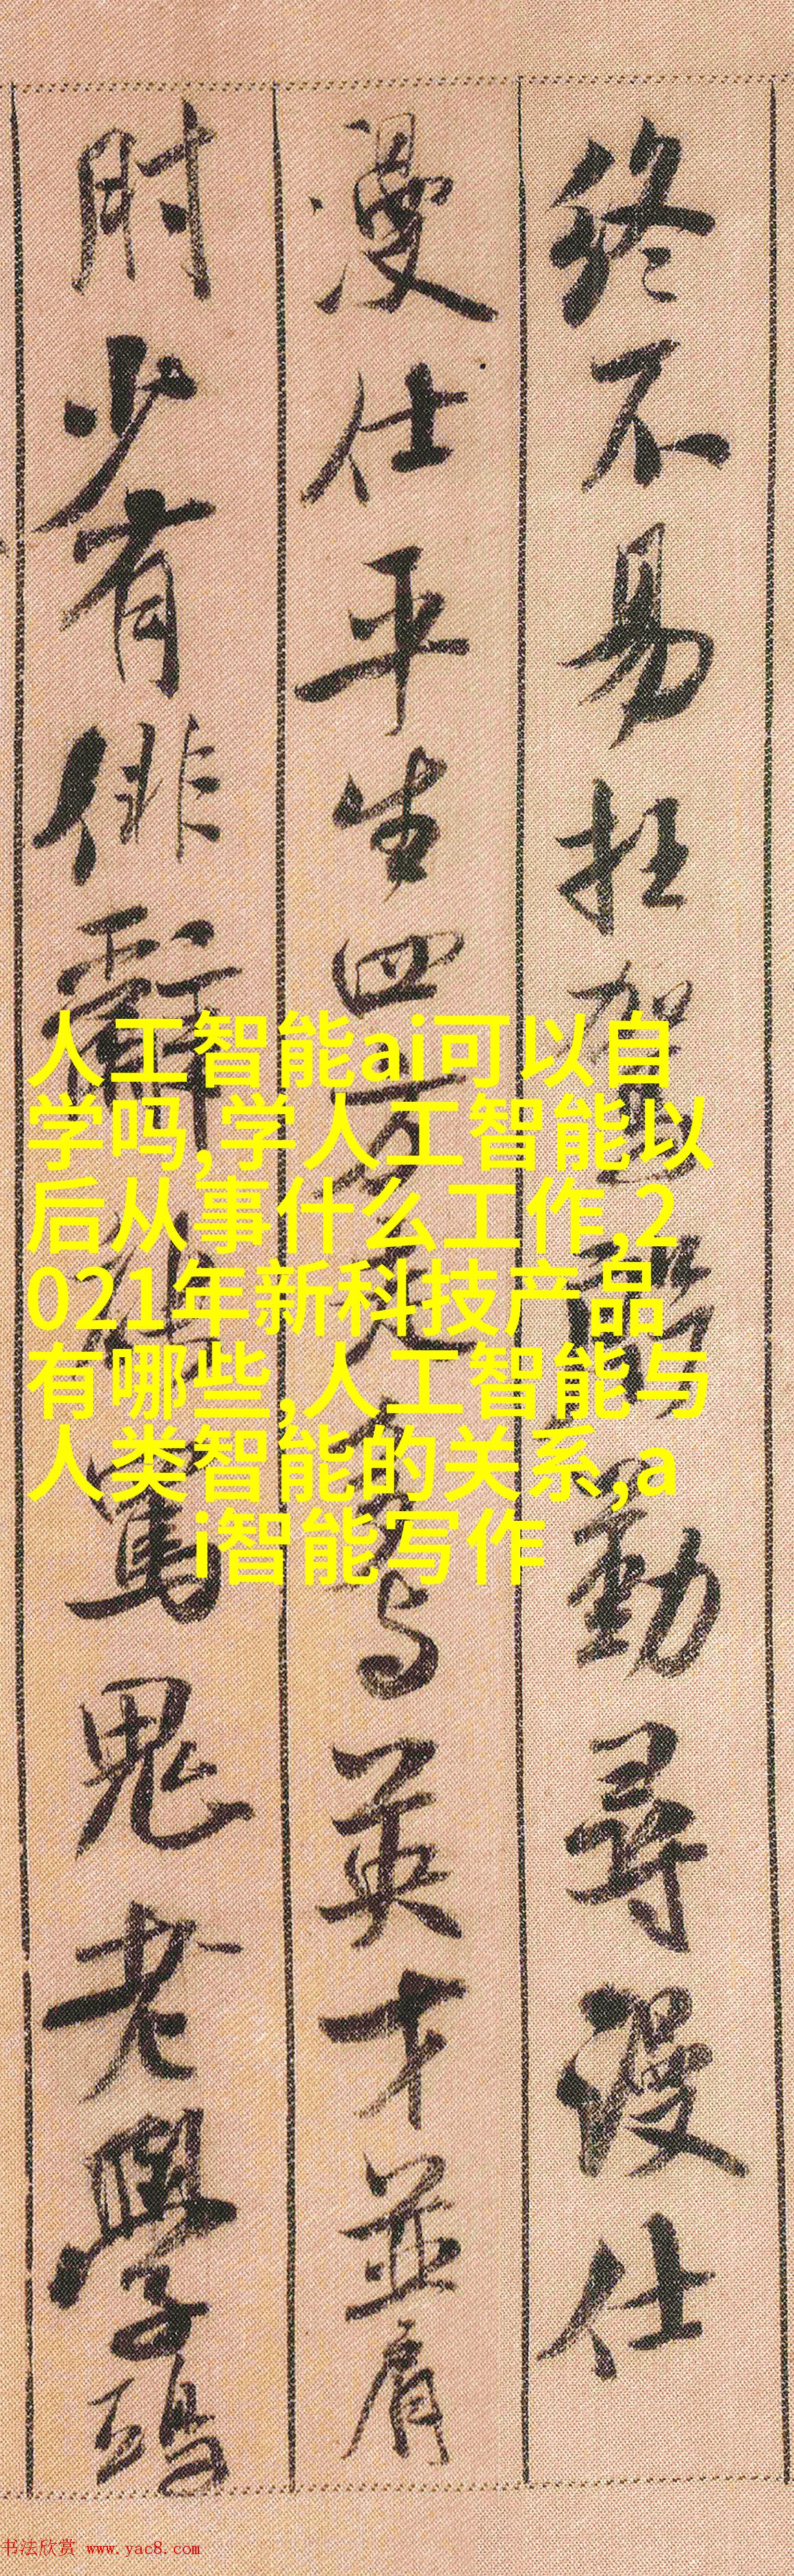 終不易枉駕殷勤尋漫仕
漫仕平生四方走多与英才並肩
肘少有俳辭能罵鬼老學鴟
人工智能ai可以自
学吗,学人工智能以
后从事什么工作,2
021年新科技产品
有哪些,人工智能与
人类智能的关系,a
i智能写作
书法欣赏 www.yac8.com